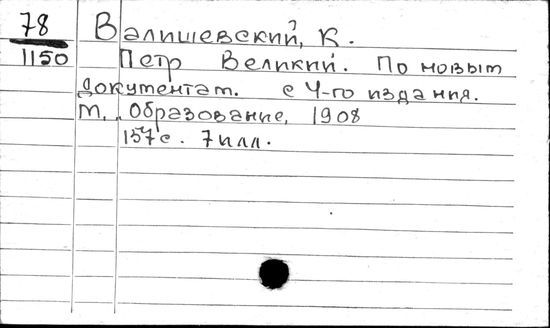 78 Валишевский, К.
1150 Петр Великий. По новым
документам. с 4-го издания.
М., Образование, 1908
157с. 7илл.